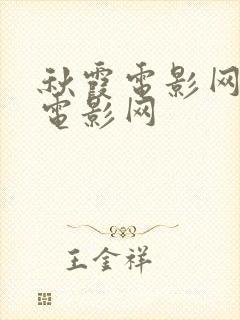 秋霞電影网
電影网
王金祥